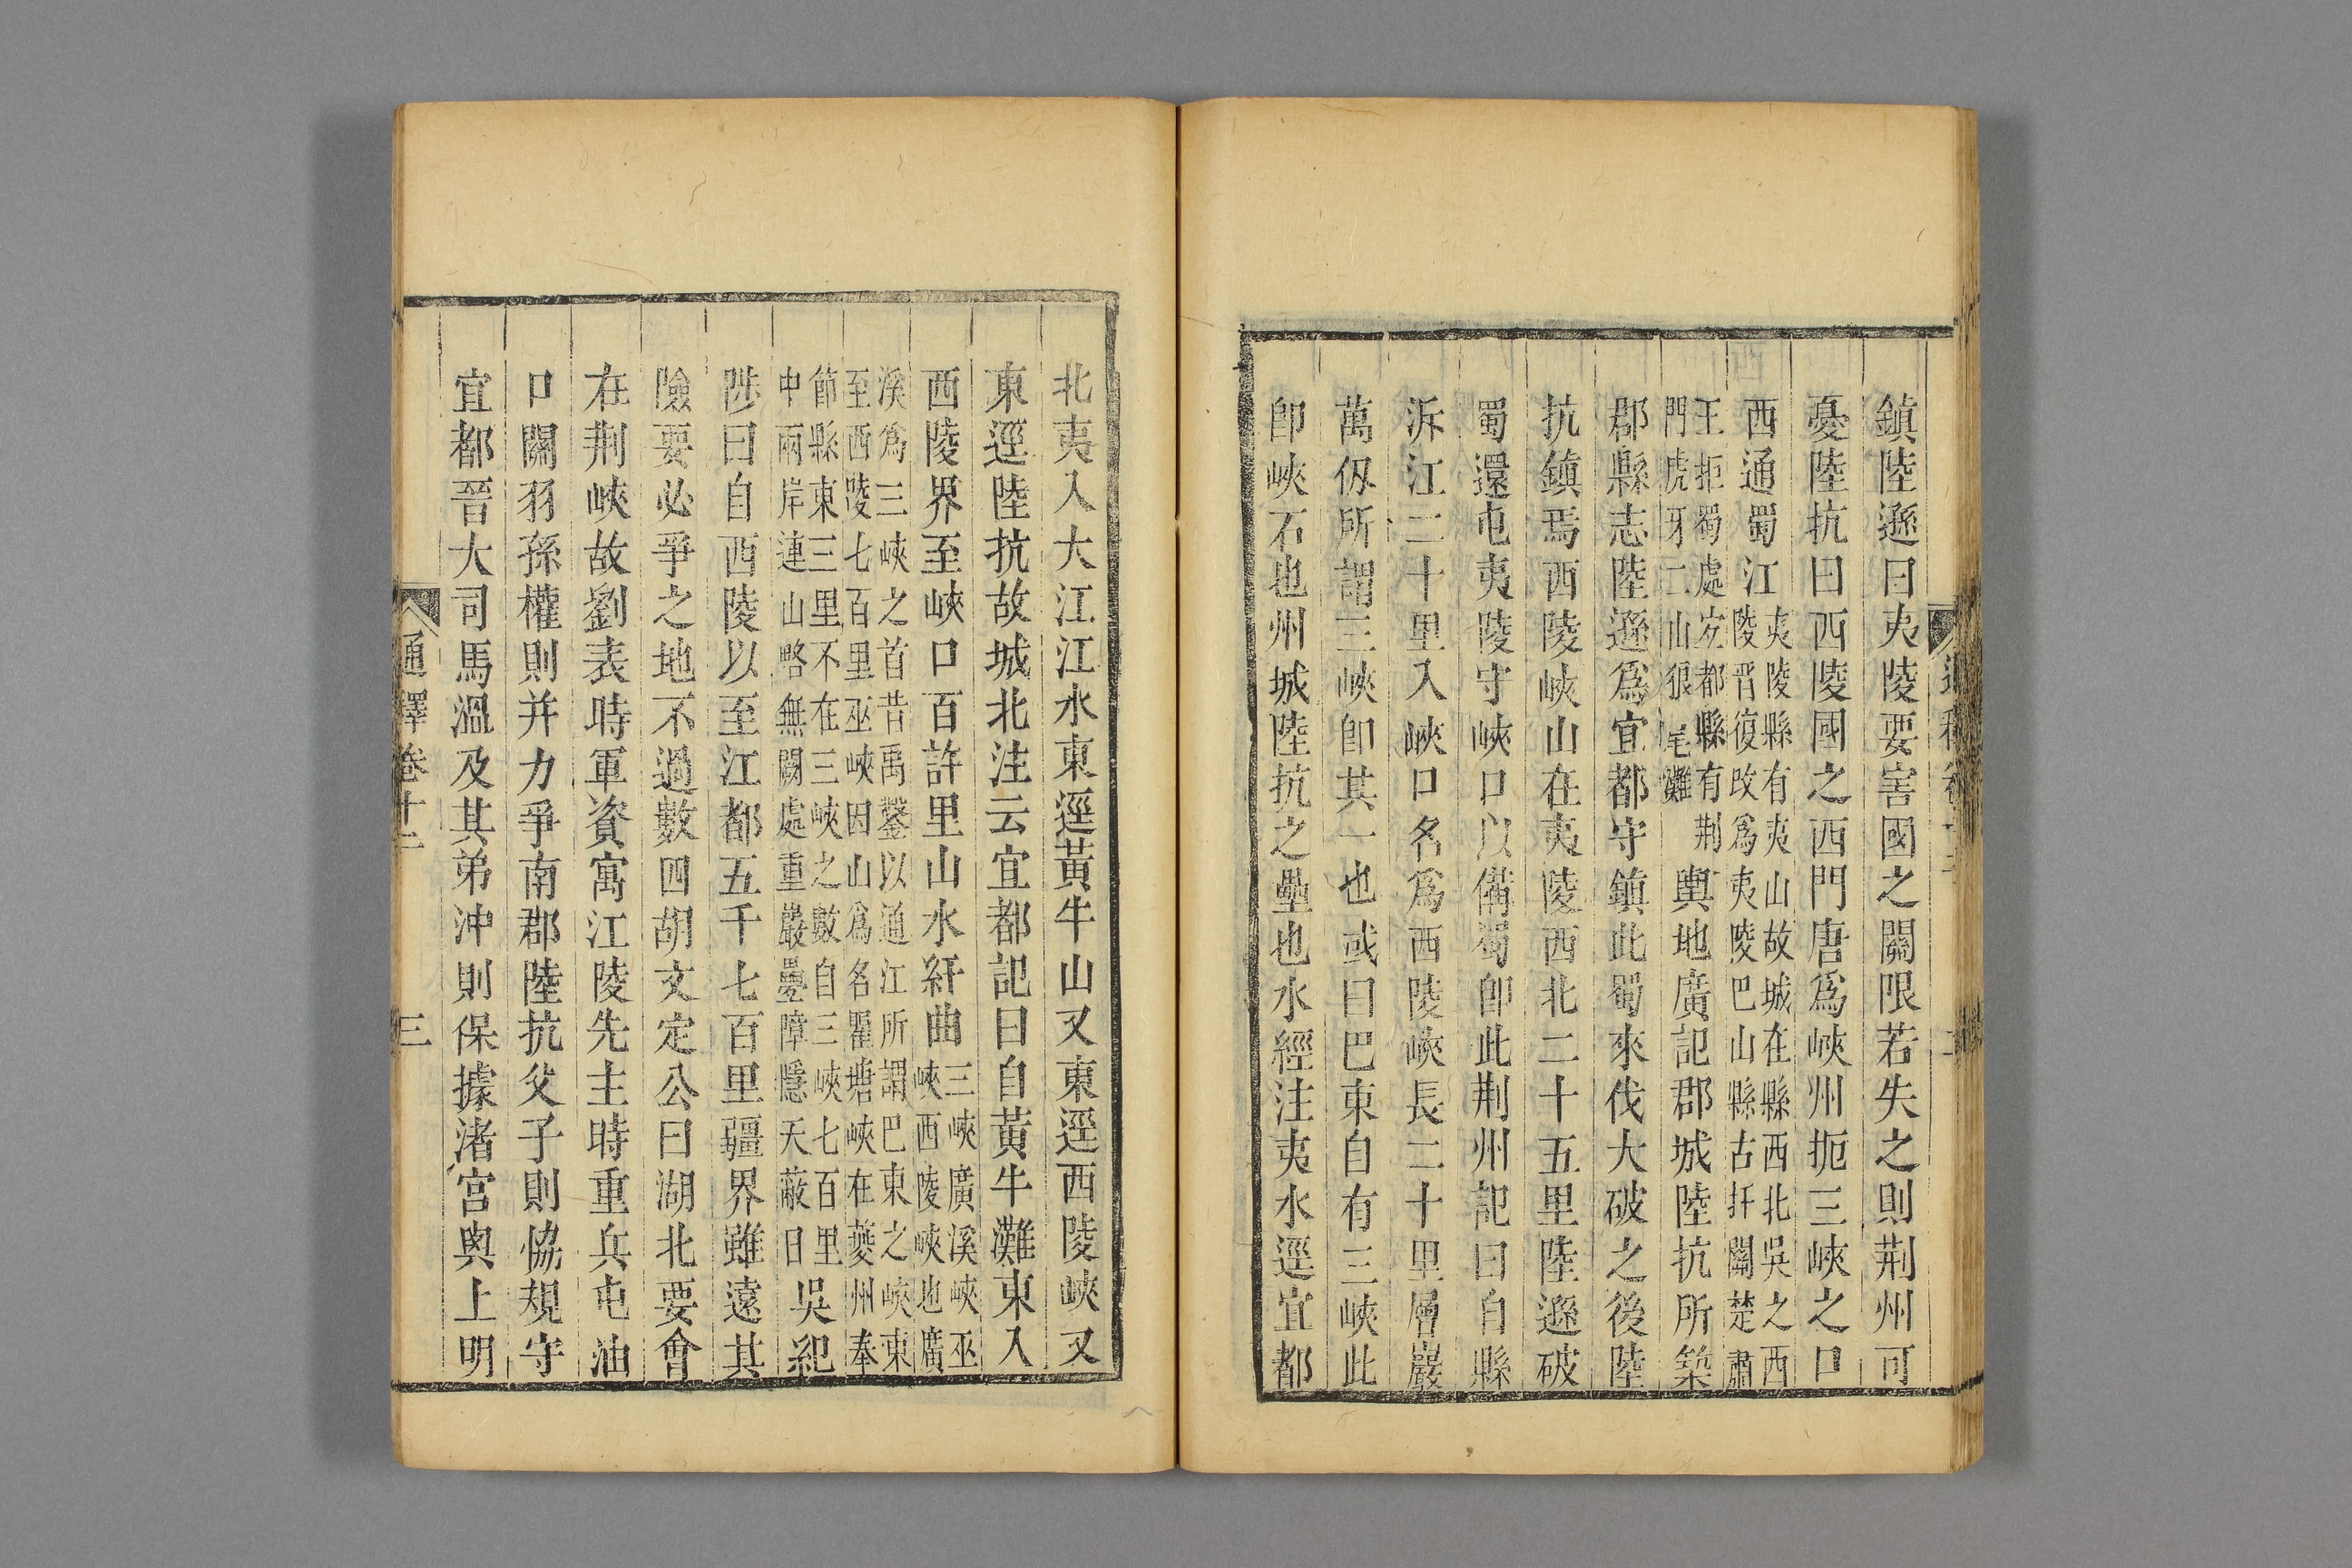 鎮陸遜曰夷陵要害國之關限若失之則荆州可
憂陸抗曰西陵國之西門唐爲峽州扼三峽之口
西通蜀江夷陵縣有夷山故城在縣西北吳之西
陵晉復改爲夷陵巴山縣古扞關楚肅
王拒蜀處宜都縣有荆
門虎牙二山狼尾灘輿地廣記郡城陸抗所築
郡縣志陸遜爲宜都守鎮此蜀來伐大破之後陸
抗鎮焉西陵峽山在夷陵西北二十五里陸遜破
蜀還屯夷陵守峽口以備蜀卽此荆州記曰自縣
泝江二十里入峽口名爲西陵峽長二十里層巖
萬仭所謂三峽卽其一也或曰巴東自有三峽此
卽峽石也州城陸抗之壘也水經注夷水逕宜都
北夷入大江江水東逕黃牛山又東逕西陵峽又
東逕陸抗故城北注云宜都記曰自黃牛灘東入
西陵界至峽口百許里山水紆曲三峽廣溪峽巫
峽西陵峽也廣
溪爲三峽之首昔禹鑿以通江所謂巴東之峽東
至西陵七百里巫峽因山爲名瞿塘峽在夔州奉
節縣東三里不在三峽之數自三峽七百里
中兩岸連山略無闕處重巖疊障隱天蔽日吳紀
陟曰自西陵以至江都五千七百里疆界雖遠其
險要必爭之地不過數四胡文定公曰湖北要會
在荆峽故劉表時軍資寓江陵先主時重兵屯油
口關羽孫權則并力爭南郡陸抗父子則恊規守
宜都晉大司馬溫及其弟沖則保據渚宮與上明
通釋卷十二
三